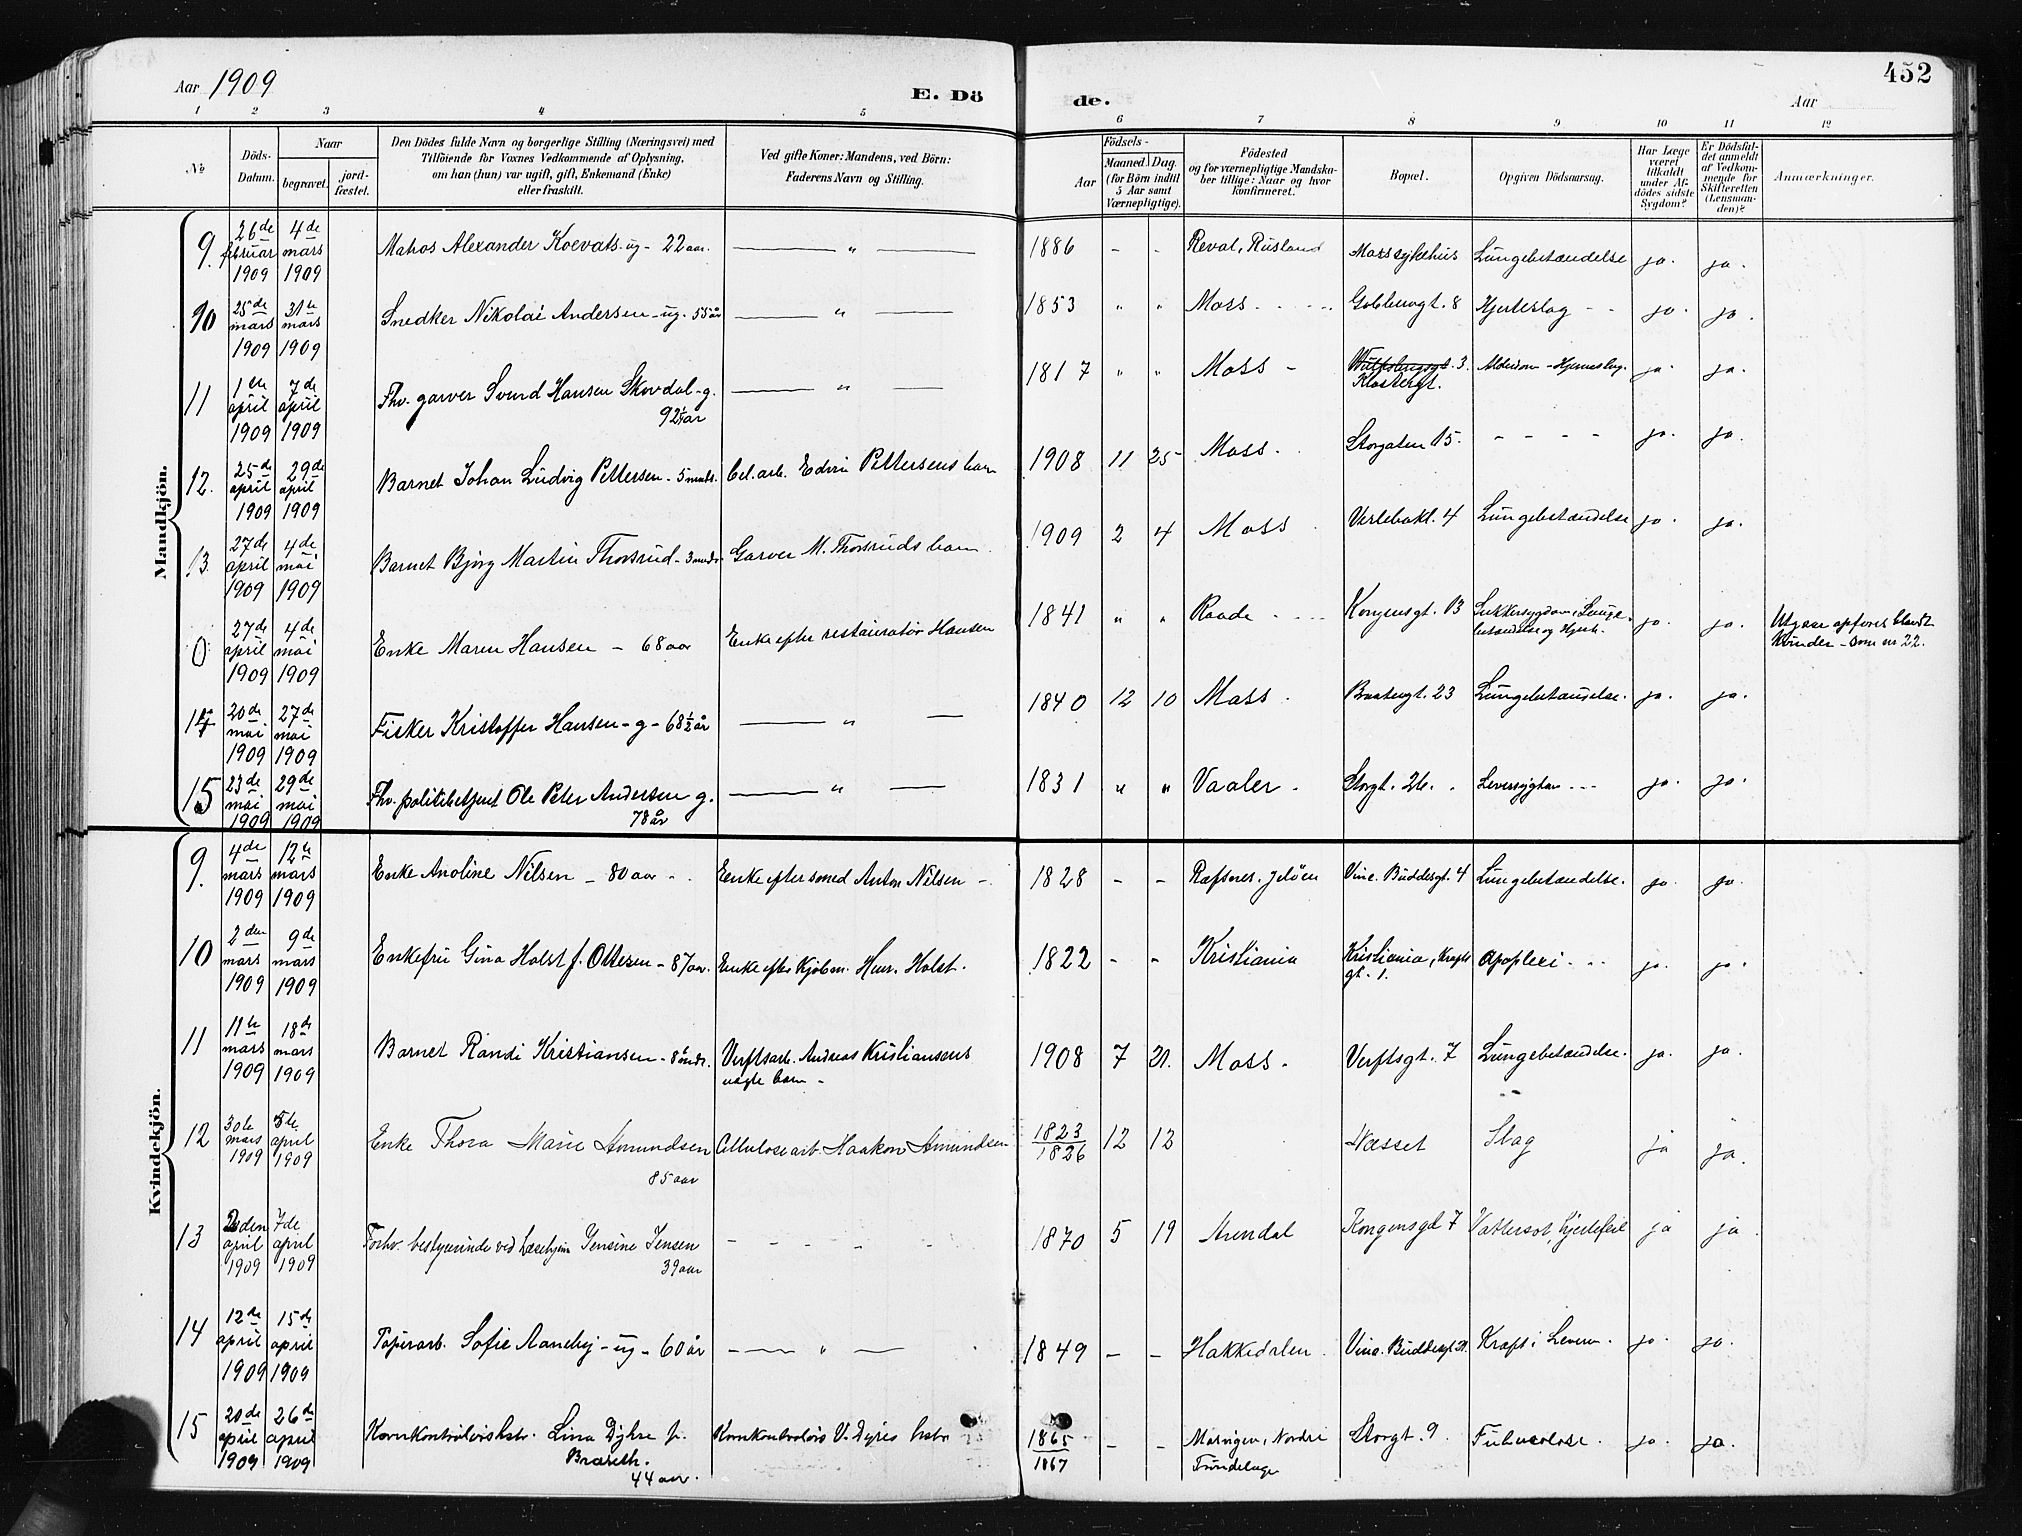 Aar 1909
E. Dö
de.
452
Aar
1 2 3 4 5 6 7 8 9 10 11 12
№
Döds-Datum.
Naar
begravet.
jord-fæstet.
Den Dödes fulde Navn og borgerlige Stilling (Næringsvei) med
Tilföiende for Voxnes Vedkommende af Oplysning,
om han (hun) var ugift, gift, Enkemand (Enke)
eller fraskilt.
Ved gifte Koner: Mandens, ved Börn:
Faderens Navn og Stilling.
Födsels-
Aar
Maaned. Dag.
(for Börn indtil
5 Aar samt
Værnepligtige).
Födested
og for værnepligtige Mandska-
ber tillige: Naar og hvor
konfirmeret.
Bopæl.
Opgiven Dödsaarsag.
Har Læge
været
tilkaldt
under Af-
dödes sidste
Sygdom?
Er Dödsfal-
det anmeldt
af Vedkom-
mende for
Skifteretten
(Lensman-
den)?
Anmærkninger.
Mandkjön.
9. 26de februar 1909 4de mars 1909 Matros Alexander Koevats - ug - 22 aar. — " — 1886 - - Reval, Rusland Moss sykehus Lungebetændelse ja. ja.
10 25de mars 1909 31te mars 1909 Snedker Nikolai Andersen - ug. 55 år — " — 1853 " " Moss - - - Hjerteslag - - ja. ja.
11 1ste april 1909 7de april 1909 Fhv. garver Svend Hansen Skovdal - g.
92 1/4 aar — " — 1817 " " Moss - 3.
Klostergt. ja. ja.
12. 25de april 1909 29de april 1909 Barnet Johan Ludvig Pettersen - 5 mndr. Cel. arb. Edvin Pettersens barn 1908 11 25 Moss. Storgaten 15. - - - - ja. ja.
13. 27de april 1909 4de mai 1909 Barnet Bjørg Martin Thorsrud - 3 mndr. Garver M. Thorsruds barn 1909 2 4 Moss Lungebetændelse ja. ja.
0 27de april 1909 4de mai 1909 Enke Maren Hansen - 68 aar Enke efter restauratør Hansen 1841 " " Raade - - - Kongensgt. 13 Sukkersygdom, Lunge-
betændelse og Hjerte. ja. ja. Utgaar opføres blandt
Kvinder - som nr 22.
14 20de mai 1909 27de mai 1909 Fisker Kristoffer Hansen - g - 68 1/2 år — " — 1840 12 10 Moss. 23 Lungebetændelse. ja. ja.
15 23de mai 1909 29de mai 1909 Fhv. politibetjent Ole Peter Andersen g.
78 år — " — 1831 " " Vaaler. Storgt. 26. Leversygdom - - - ja. ja.
Kvindekjön.
9. 4de mars 1909 12te mars 1909 Enke Anoline Nilsen - 80 aar - Eenke efter smed Anton Nilsen - 1828 - - Ræfsnes. Jeløen Vinc. Buddesgt. 4 Lungebetændelse. ja. ja.
10 2den mars 1909 9de mars 1909 Enkefru Gina Holst f. Ottesen - 87 aar. Eenke efter Kjøbm. Henr. Holst. 1822 - - Kristiania Kristiania, Krafts
gt. 1. Apoplexi - - ja. ja.
11 11te mars 1909 18de mars 1909 Barnet Randi Kristiansen - 8 mndr. Verftsarb. Andreas Kristiansens
uegte barn - 1908 7 21. Moss. Verftsgt. 7 Lungebetændelse. ja. ja.
12 30te mars 1909 5te april 1909 Enke Thora Marie Amundsen
85 aar Cellulosearb. Haakon Amundsen 1823
1826 12 12 Næsset Slag ja ja.
13 2den april 1909 7de april 1909 Forhv. bestyrerinde ved læsehjem Jensine Jensen
39 aar - - - - 1870 5 19 Arendal Kongensgd 7 Vattersot, hjertefeil ja ja
14 12de april 1909 15de april 1909 Papirarb. Sofie Aaneby - ug - 60 år — " — 1849 - - Hakkedalen. Vinc. Buddesgt 21. Kræft i Leveren. ja. ja.
15 20de april 1909 26de april 1909 Kornkontrolørshstr. Lina Dyhre f.
44 aar. Kornkontrolørs V. Dyres hstr. 1865
1867 - - Nordre
Trondelage Storgt. 9. Tuberculose. ja. ja.